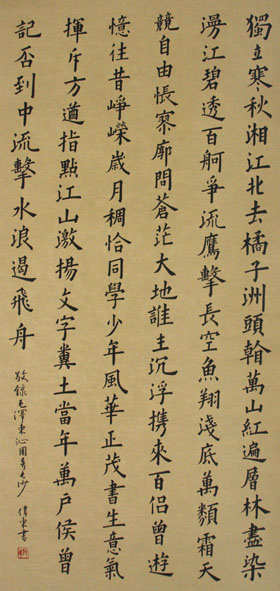 獨立寒秋湘江北去橘子洲頭看萬山紅遍層林盡染
漫江碧透百舸爭流鷹擊長空魚翔淺底萬類霜天
競自由悵寥廓問蒼茫大地誰主沉浮攜來百侶曾遊
憶往昔崢嶸歲月稠恰同學少年風華正茂書生意氣
揮斥方遒指點江山激揚文字糞土當年萬戶侯曾
記否到中流擊水浪遏飛舟
敬錄毛澤東沁園春長沙 東書